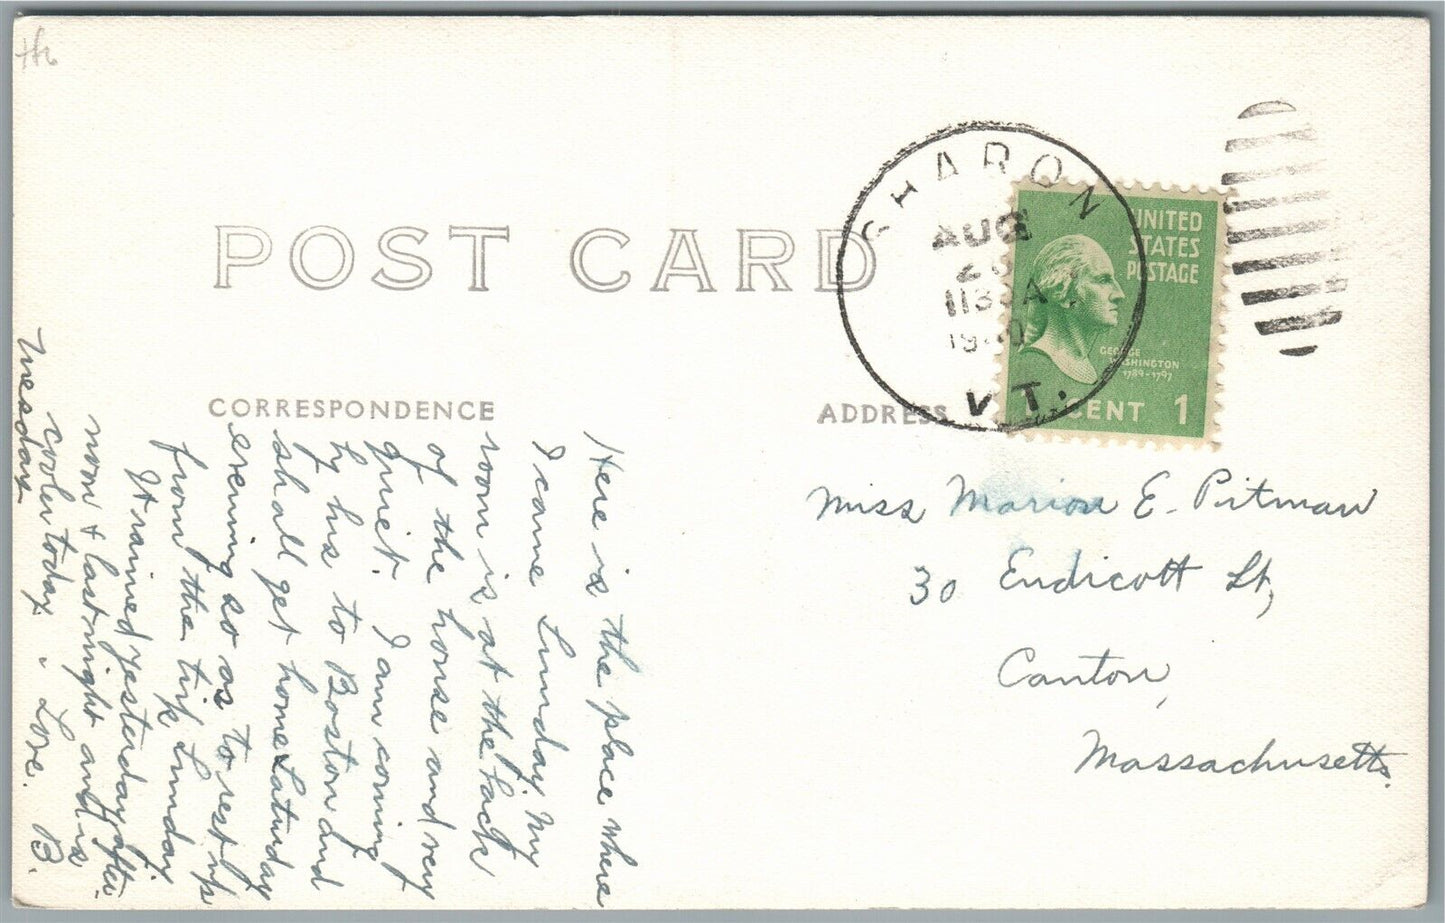 POST CARD
CORRESPONDENCE
ADDRESS
SHARON
AUG
1940
VT.
UNITED
STATES
POSTAGE
GEORGE
WASHINGTON
1789-1797
CENT 1
Miss Marion E. Pitman
30 Endicott St,
Canton,
Massachusetts.
Here is the place where
I came Sunday. My
room is at the back
of the house and very
quiet. I am coming
by bus to Boston and
shall get home Saturday
evening so as to rest up
from the trip Sunday
It rained yesterday after-
noon & last night and is
cooler today. Love. B.
Tuesday